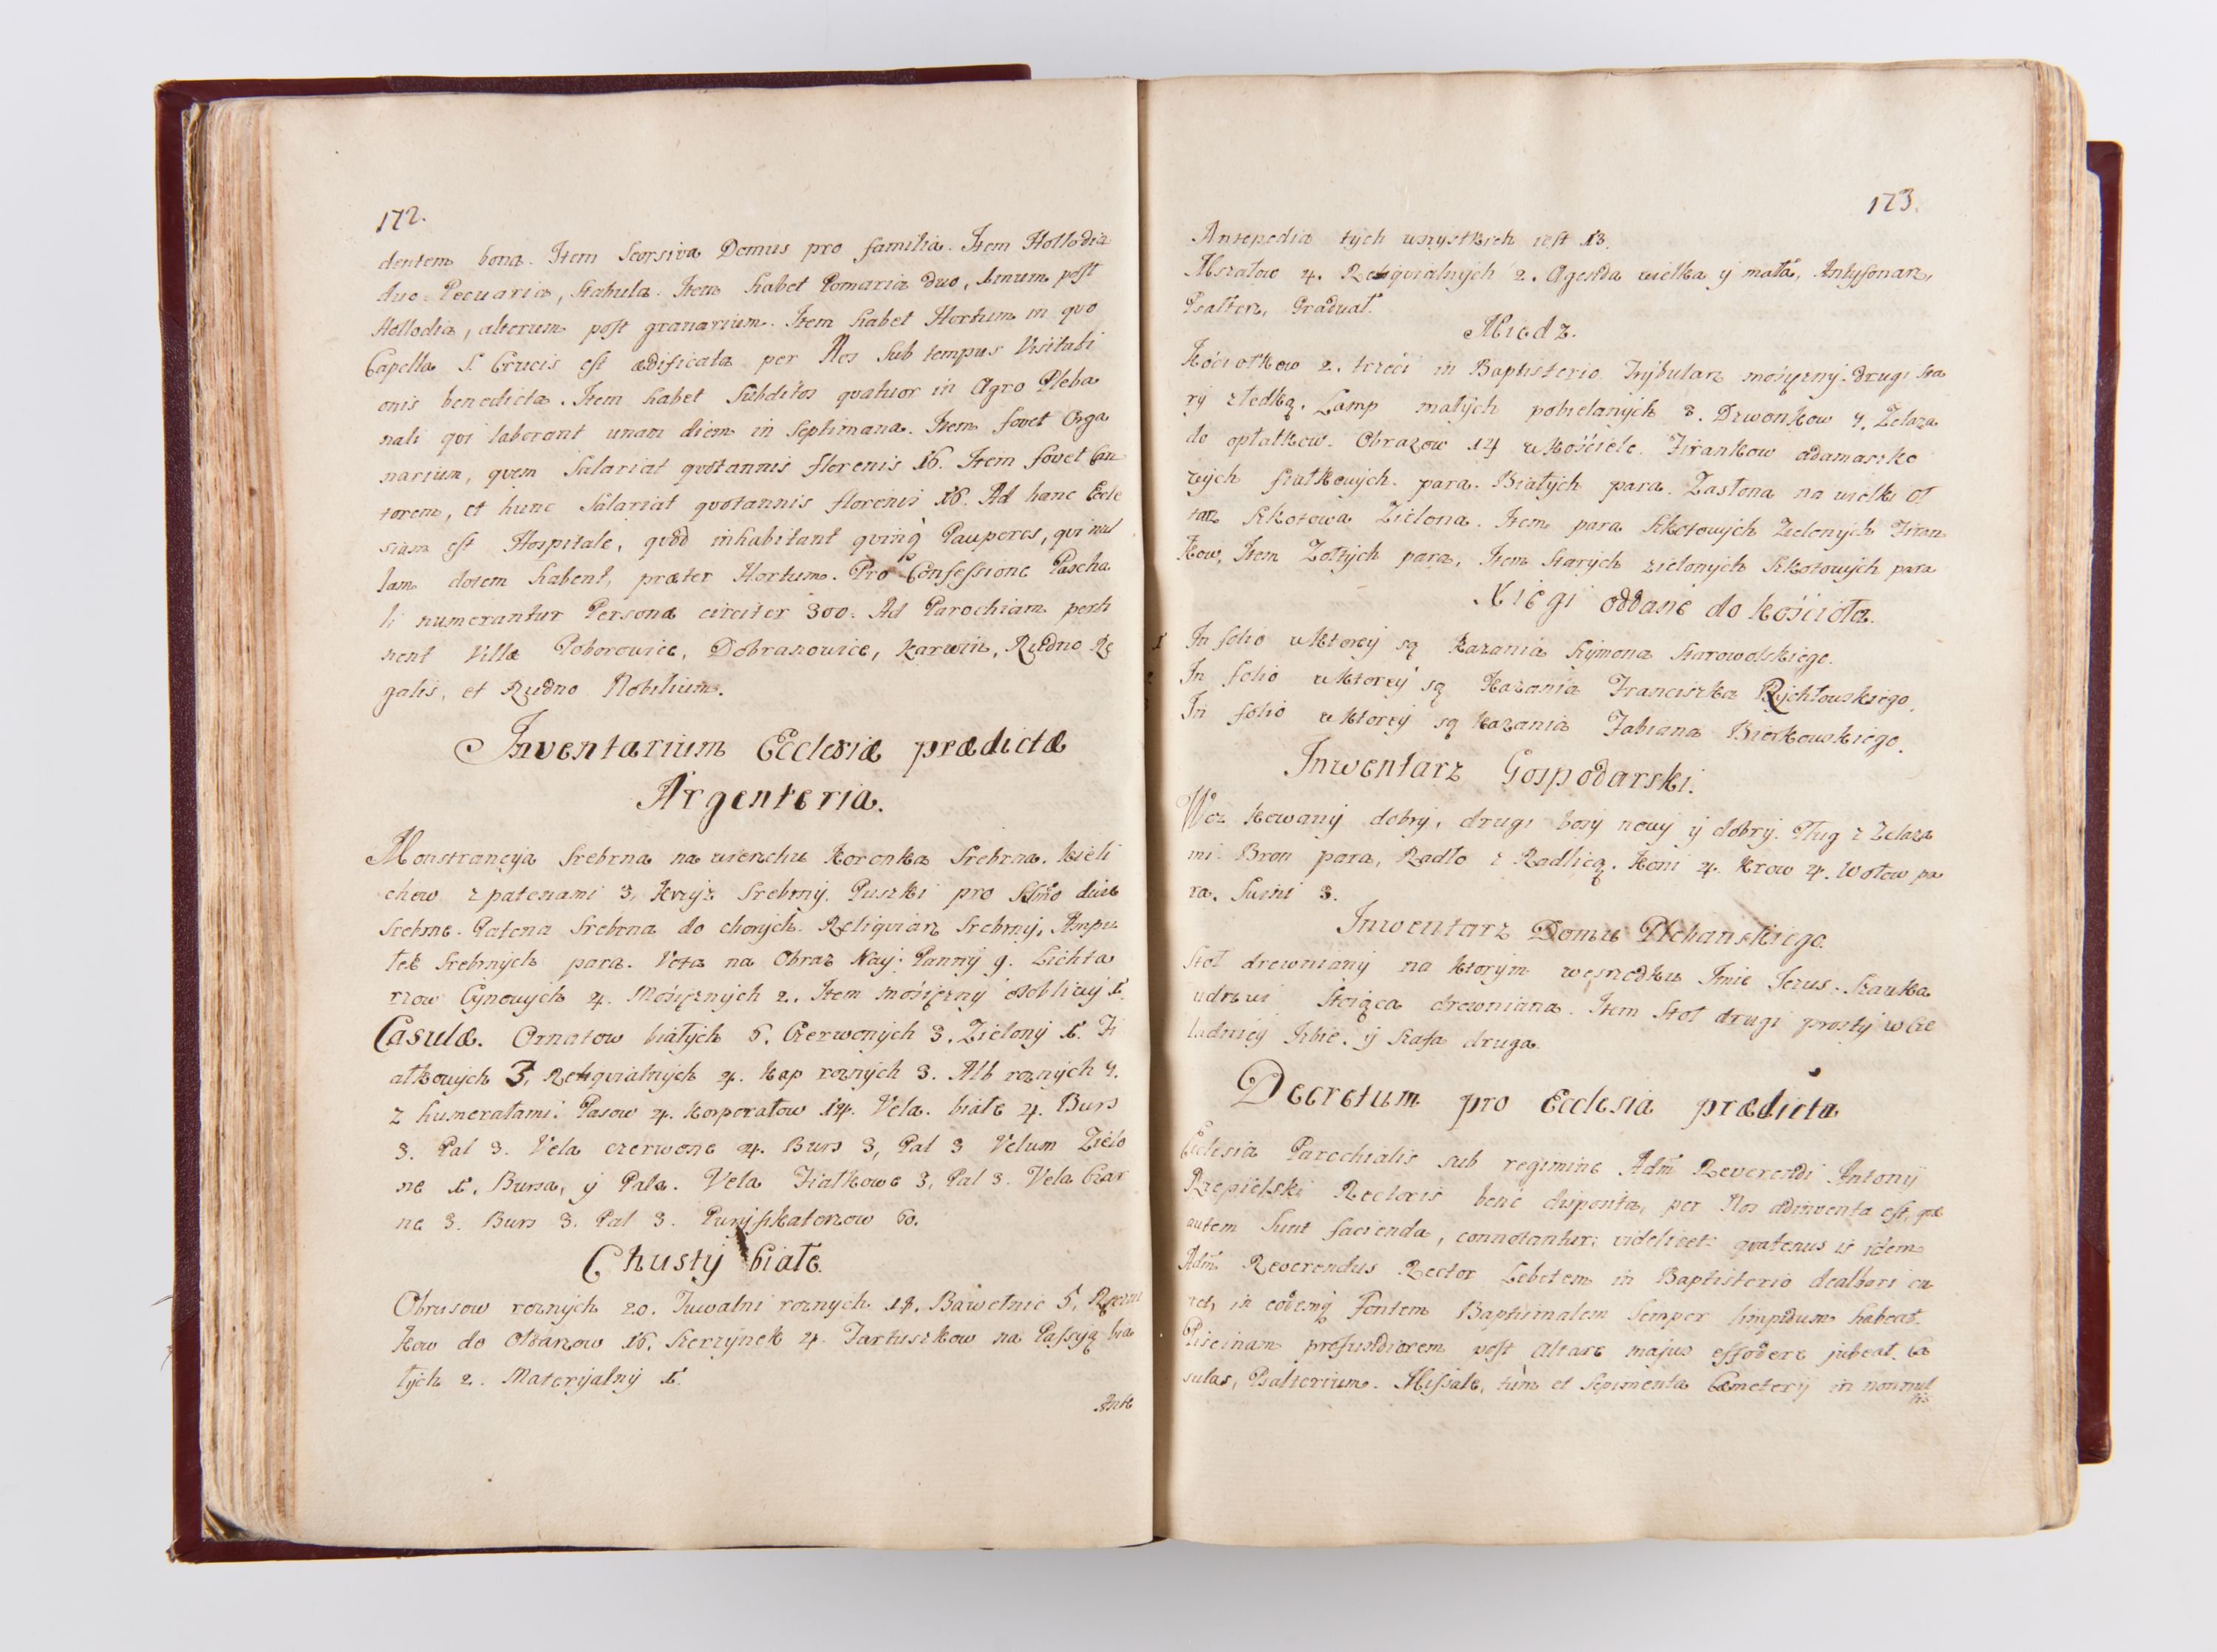 172.
dentem bona. Item Seorsiva Domus pro familia. Item Hollodia
duo Pecuaria, Stabula. Item habet Pomaria duo, unum post
Hollodia, alterum post granarium. Item habet Hortum in quo
Capella S. Crucis est ædificata per Nos Sub tempus Visitati
onis benedicta. Item habet Subditos quatuor in Agro Pleba
nali qui laborant unam diem in Septimana. Item fovet Orga
narium, quem Salariat quotannis florenis 16. Item fovet Can
torem, et hunc Salariat quotannis florenis 16. Ad hanc Eccle
siam est Hospitale, quod inhabitant quinq Pauperes, qui nul
lam dotem habent, præter Hortum. Pro Confessione Pascha
li numerantur Personæ circiter 300. Ad Parochiam perti
nent Villæ Poborowice, Dobranowice, Karwin, Rudno Re
galis, et Rudno Nobilium.
Inventarium Ecclesiæ prædictæ
Argenteria.
Monstrancyja Srebrna na wierzchu Koronka Srebrna. Kieli
chow z patenami 3, Krzyz Srebrny. Puszki pro SSmo dwie
Srebrne. Patena Srebrna do chorych. Reliqviarz Srebrny, Ampu
łek Srebrnych para. Vota na Obraz Nay: Panny 9. Lichta
rzow Cynowych 4. Mosięznych 2. Item mosięzny osobliwy 1.
Casulæ. Ornatow białych 6. Czerwonych 3. Zielony 1. Fi
ałkowych 3, Reqvialnych 4. Kap roznych 3. Alb roznych 9.
z humerałami: Pasow 4. Korporałow 14. Vela. białe 4. Burs
3. Pal 3. Vela czerwone 4. Burs 3, Pal 3 Velum Zielo
ne 1. Bursa, y Pala. Vela Fiałkowe 3, Pal 3. Vela Czar
ne 3. Burs 3. Pal 3. Puryfikaterzow 60.
Chusty białe.
Obrusow roznych 20. Tuwalni roznych 18. Bawełnic 5, Ręczni
kow do Ołtarzow 16. Skrzynek 4. Fartuszkow na Passyą bia
łych 2. Materyjalny 1.
Ante
173.
Antepedia tych wszystkich iest 13.
Mszałow 4. Reqvialnych 2. Agenda wielka y mała, Antyfonarz,
Psałterz, Graduał.
Miedz.
Kociołkow 2. trzeci in Baptisterio. Trybularz mosięzny. drugi sta
ry z łodką. Lamp małych pobielanych 3. Dzwonkow 9. Zelaza
do opłatkow. Obrazow 14 w Kościele. Firankow adamaszko
wych fiałkowych. para. Białych para. Zasłona na wielki Oł
tarz Kitotowa Zielona. Item para Kitotowych Zielonych Firan
kow. Item Zołtych para. Item starych zielonych Kitotowych para
Xięgi oddane do Kościoła.
1 In folio w Ktorey są Kazania Szymona Starowolskiego.
In folio w Ktorey są Kazania Franciszka Rychłowskiego.
In folio w Ktorey są Kazania Fabiana Birkowskiego.
Inwentarz Gospodarski.
Woz kowany dobry, drugi bosy nowy y dobry. Pług z Zelaza
mi. Bron para, Radło z Radlicą. Koni 4. Krow 4. Wołow pa
ra. Swini 3.
Inwentarz Domu Plebanskiego.
Stoł drewniany na Ktorym we srzodku Imie Jezus. Szafka
u drzwi Stoiąca drewniana. Item Stoł drugi prosty w Cze
ladnicy Izbie. y Szafa druga.
Decretum pro Ecclesia prædicta
Ecclesia Parochialis sub regimine Adm Reverendi Antonij
Rzepielski Rectoris bene disposita, per Nos adinventa est, quæ
autem Sunt facienda, connotantur: videlicet: quatenus is idem
Adm Reverendus Rector Lebetem in Baptisterio dealbari cu
ret, in eodemq Fontem Baptismalem Semper limpidum habeat.
Piscinam profundiorem post Altare majus effodere jubeat. Ca
sulas, Psalterium. Missale, tùm et Sepimenta Cæmeterij in nonnul
lis